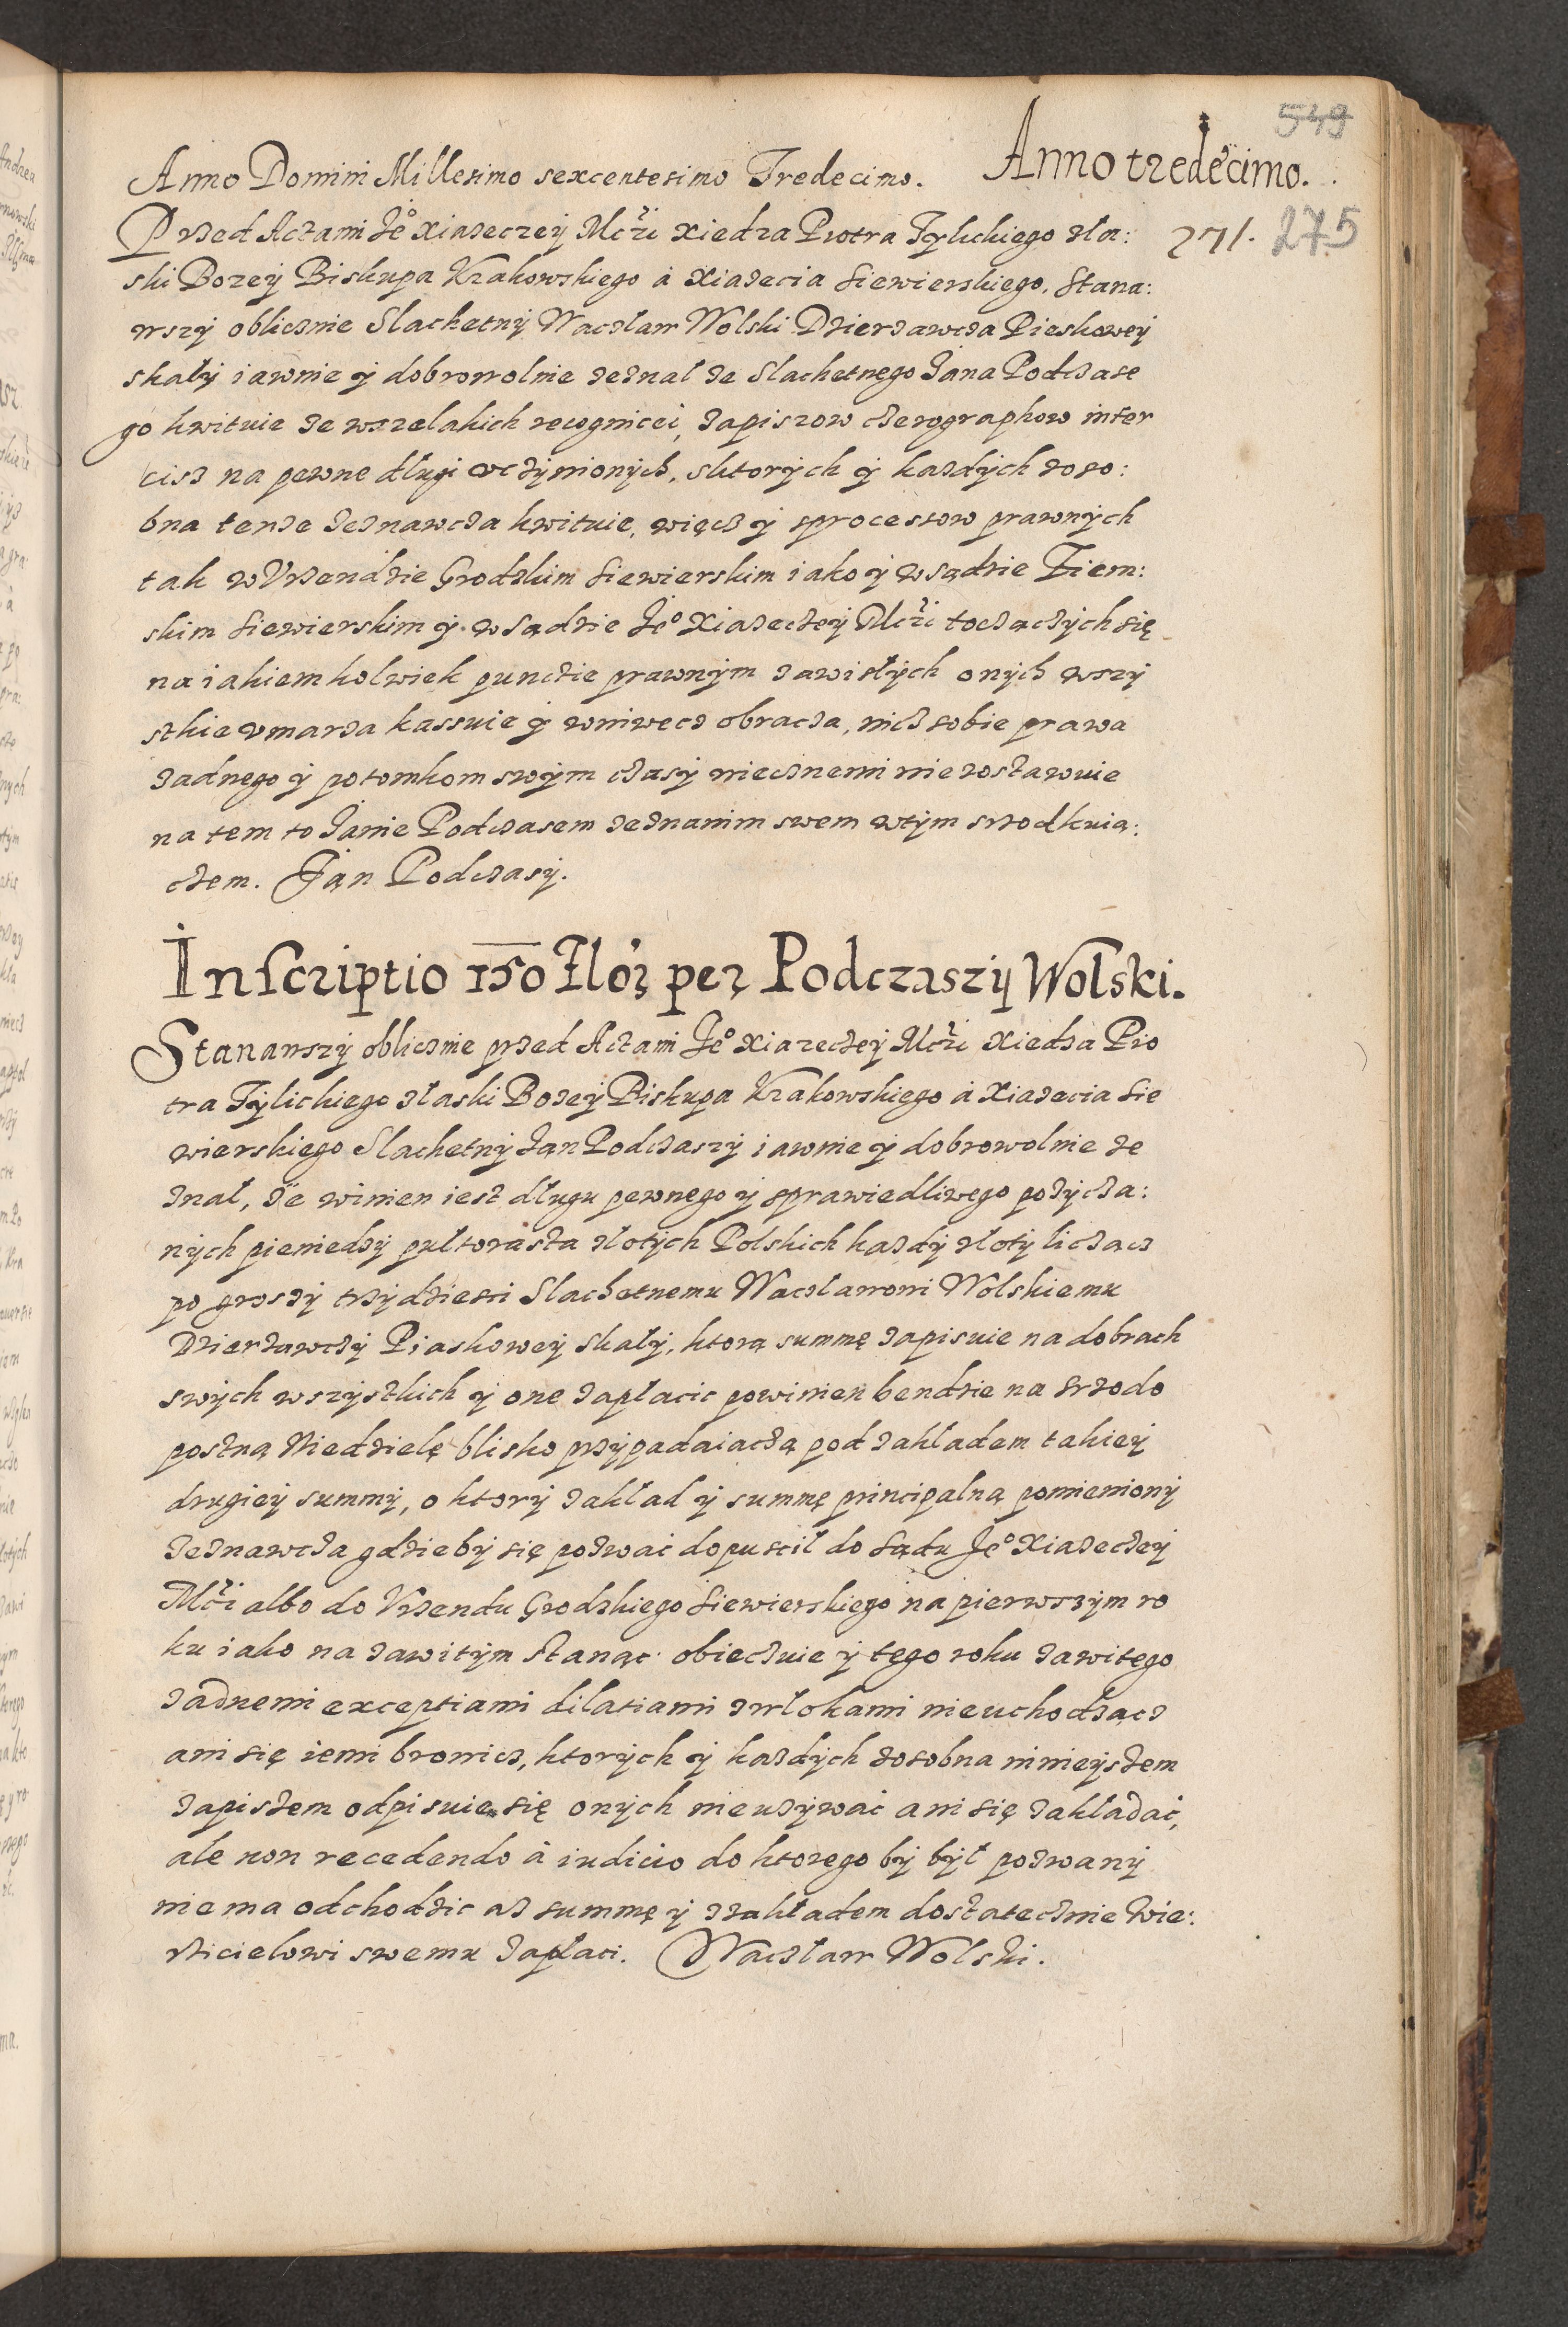 549
Anno tredecimo.
Anno Domini Millesimo sexcentesimo Tredecimo.
271. 275
Przed Actami Je° Xiazeczey Mczi xiedza Piotra Tylickiego zła:
ski Bozey Biskupa Krakowskiego a Xiazecia Siewierskiego, Stana:
wszy oblicznie Slachetny Waczlaw Wolski Dzierzawcza Pieskowey
skały iawnie y dobrowolnie zeznal ze Slachetnego Jana Podczase
go kwituie ze wszelakich recognicei, zapiszow czerographow inter
cisz na pewne długi vczynionych, sktorych y kazdych zoso:
bna tenze zeznawcza kwituie, więcz y sprocessow prawnych
tak w Vrzendzie Grodzkim Siewierskim iako y w sądzie Ziem:
skim Siewierskim y w Sądzie Je° Xiazeczey Mczi toczączych się
na iakiemkolwiek punczie prawnym zawisłych onych wszy
stkie vmarza kassuie y wniwecz obracza, nicz sobie prawa
zadnego y potomkom swym czasy wiecznemi nie zostawuie
na tem to Janie Podczasem zeznanim swem wtym srzodkuią:
czem. Jąn Podczasy.
Inscriptio 150 Złoż per Podczaszy Wolski.
Stanawszy oblicznie przed Actami Je° Xiazeczey Mczi Xiedza Pio
tra Tylickiego złaski Bozey Biskupa Krakowskiego a Xiazecia Sie
wierskiego Slachetny Jan Podczaszy iawnie y dobrowolnie ze
znał, że winien iest długu pewnego y sprawiedliwego pozycza:
nych pieniedzy pułtorasta złotych Polskich kazdy złoty licząc
po groszy trzydziesci Slachetnemu Waczlawowi Wolskiemu
Dzierzawczy Piaskowey Skały, ktorą summę zapisuie na dobrach
swych wszystkich y onę zapłacic powinien bendzie na srzodo
postną Niedzielę blisko przypadaiaczą pod zakladem takiey
drugiey summy, o ktory zakład y summę principalną pomieniony
zeznawcza gdzieby się pozwać dopuscił do Sądu Je° Xiazeczey
Mczi albo do Vrzendu Grodzkiego Siewierskiego na pierwszym ro
ku iako na zawitym stanąc obieczuie y tego roku zawitego
zadnemi exceptiami dilatiami zwlokami nieuchodzącz
ani się iemi bronicz, ktorych y kazdych zosobna ninieyszem
zapiszem odpisuie się onych nieuzywać ani się zakładać,
ale non recedendo à iudicio do ktorego by był pozwany
nie ma odchodzic az summę y zzakładem dostatecznie Wie:
rzicielowi swemu zapłaci. Waczław Wolski.